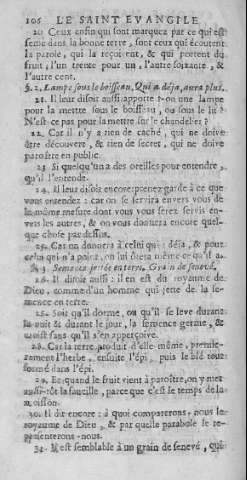 106 LE SAINT EVANGILE
20. Ceux enfin qui sont marquez par ce qui est
semé dans la bonne terre, sont ceux qui écoutent
la parole, qui la reçoivent, & qui portent du
fruit, l'un trente pour un, l'autre soixante, &
l'autre cent.
§. 2. Lampe sous le boisseau. Qui a déja, aura plus.
21. Il leur disoit aussi: apporte-t-on une lampe
pour la mettre sous le boisseau, ou sous le lit?
N'est-ce pas pour la mettre sur le chandelier?
22. Car il n'y a rien de caché, qui ne doive
être découvert, & rien de secret, qui ne doive
paroître en public.
23. Si quelqu'un a des oreilles pour entendre,
qu'il l'entende.
24. Il leur disoit encore: prenez garde à ce que
vous entendez: car on se servira envers vous de
la même mesure dont vous vous serez servis en-
vers les autres, & on vous donnera encore quel-
que chose par dessus.
25. Car on donnera à celui qui a déja, & pour
celui qui n'a point, on lui ôtera même ce qu'il a.
§. 3. Semence jettée en terre. Grain de senevé.
26. Il disoit aussi: il en est du royaume de
Dieu, comme d'un homme qui jette de la se-
mence en terre.
27. Soit qu'il dorme, ou qu'il se leve durant
la nuit & durant le jour, la semence germe, &
croît sans qu'il s'en apperçoive.
28. Car la terre produit d'elle-même, premie-
rement l'herbe, ensuite l'épi, puis le blé tout
formé dans l'épi.
29. Et quand le fruit vient à paroître, on y met
aussi-tôt la faucille, parce que c'est le temps de la
moisson.
30. Il dit encore: à quoi comparerons-nous le
royaume de Dieu, & par quelle parabole le re-
presenterons-nous?
31. Il est semblable à un grain de senevé, qui